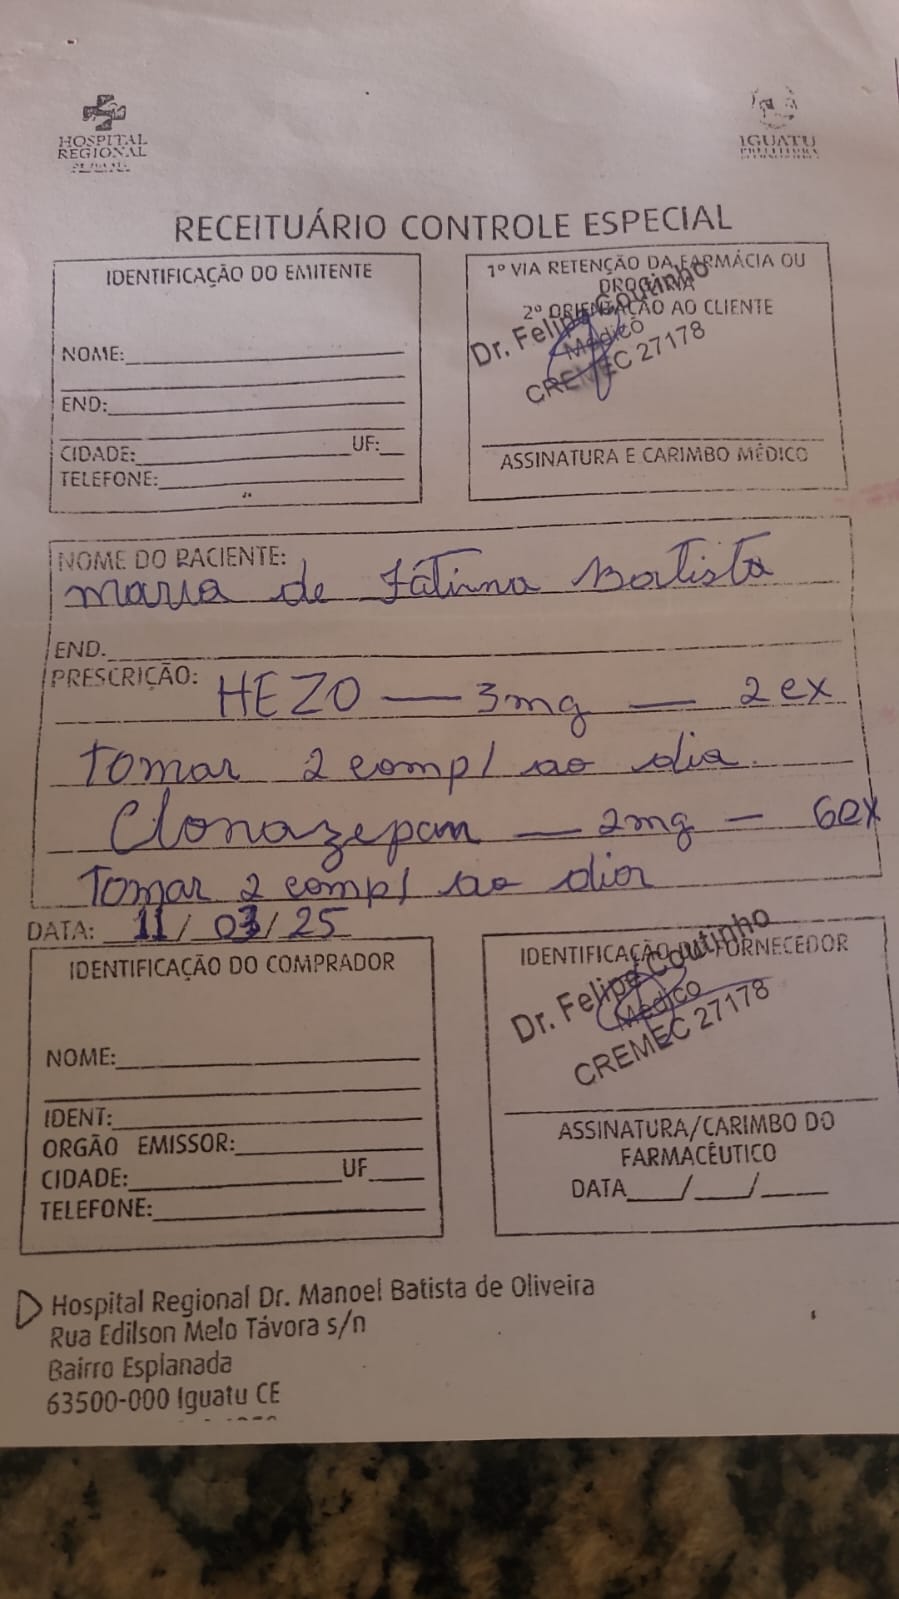 HOSPITAL
REGIONAL
IGUATU
PREFEITURA
RECEITUÁRIO CONTROLE ESPECIAL
IDENTIFICAÇÃO DO EMITENTE
NOME:
END:
CIDADE: UF:
TELEFONE:
1º VIA RETENÇÃO DA FARMÁCIA OU
DROGARIA
2º ORIENTAÇÃO AO CLIENTE
Dr. Felipe Coutinho
Médico
CREMEC 27178
ASSINATURA E CARIMBO MÉDICO
NOME DO PACIENTE:
Maria de Fátima Batista
END.
PRESCRIÇÃO:
HEZO — 3mg — 2 cx
Tomar 2 comp/ ao dia
Clonazepam — 2mg — 6cx
Tomar 2 comp/ ao dia
DATA: 11/03/25
IDENTIFICAÇÃO DO COMPRADOR
NOME:
IDENT:
ORGÃO EMISSOR:
CIDADE: UF
TELEFONE:
IDENTIFICAÇÃO DO FORNECEDOR
Dr. Felipe Coutinho
Médico
CREMEC 27178
ASSINATURA/CARIMBO DO
FARMACÊUTICO
DATA / /
Hospital Regional Dr. Manoel Batista de Oliveira
Rua Edilson Melo Távora s/n
Bairro Esplanada
63500-000 Iguatu CE